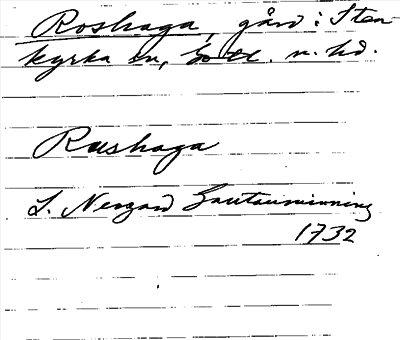 Roshaga, gård i Sten-
kyrka sn, Gotl. n. hd.
Rushaga
L. Nergard Gautauminning
1732